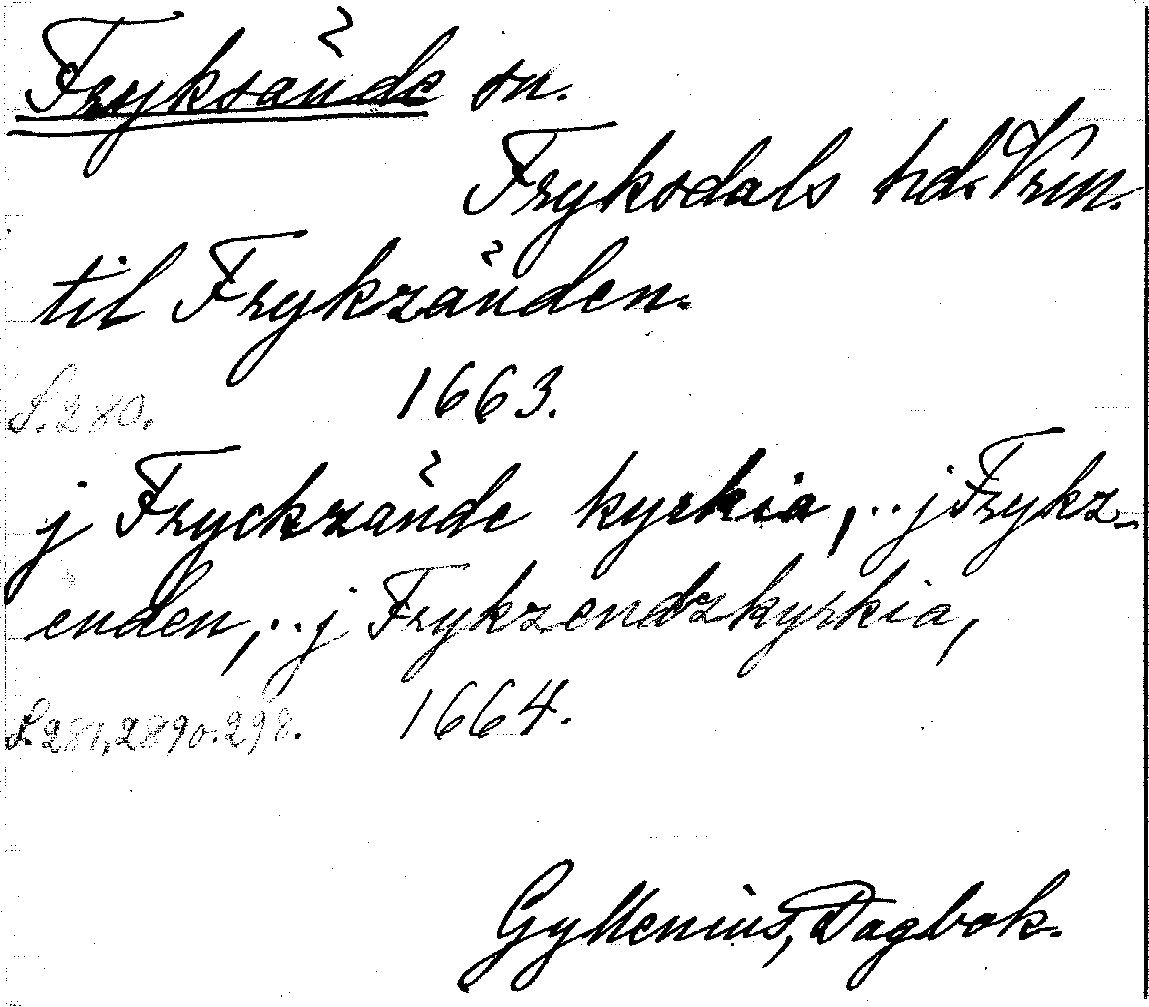 Fryksände sn.
Fryksdals hd. Vrm.
til Frykzänden.
S. 280. 1663.
j Fryckzände kyrkia, .. j Frykz-
enden, .. j Frykzendzkyrkia,
S. 281, 289 o. 298. 1664.
Gyllenius, Dagbok.